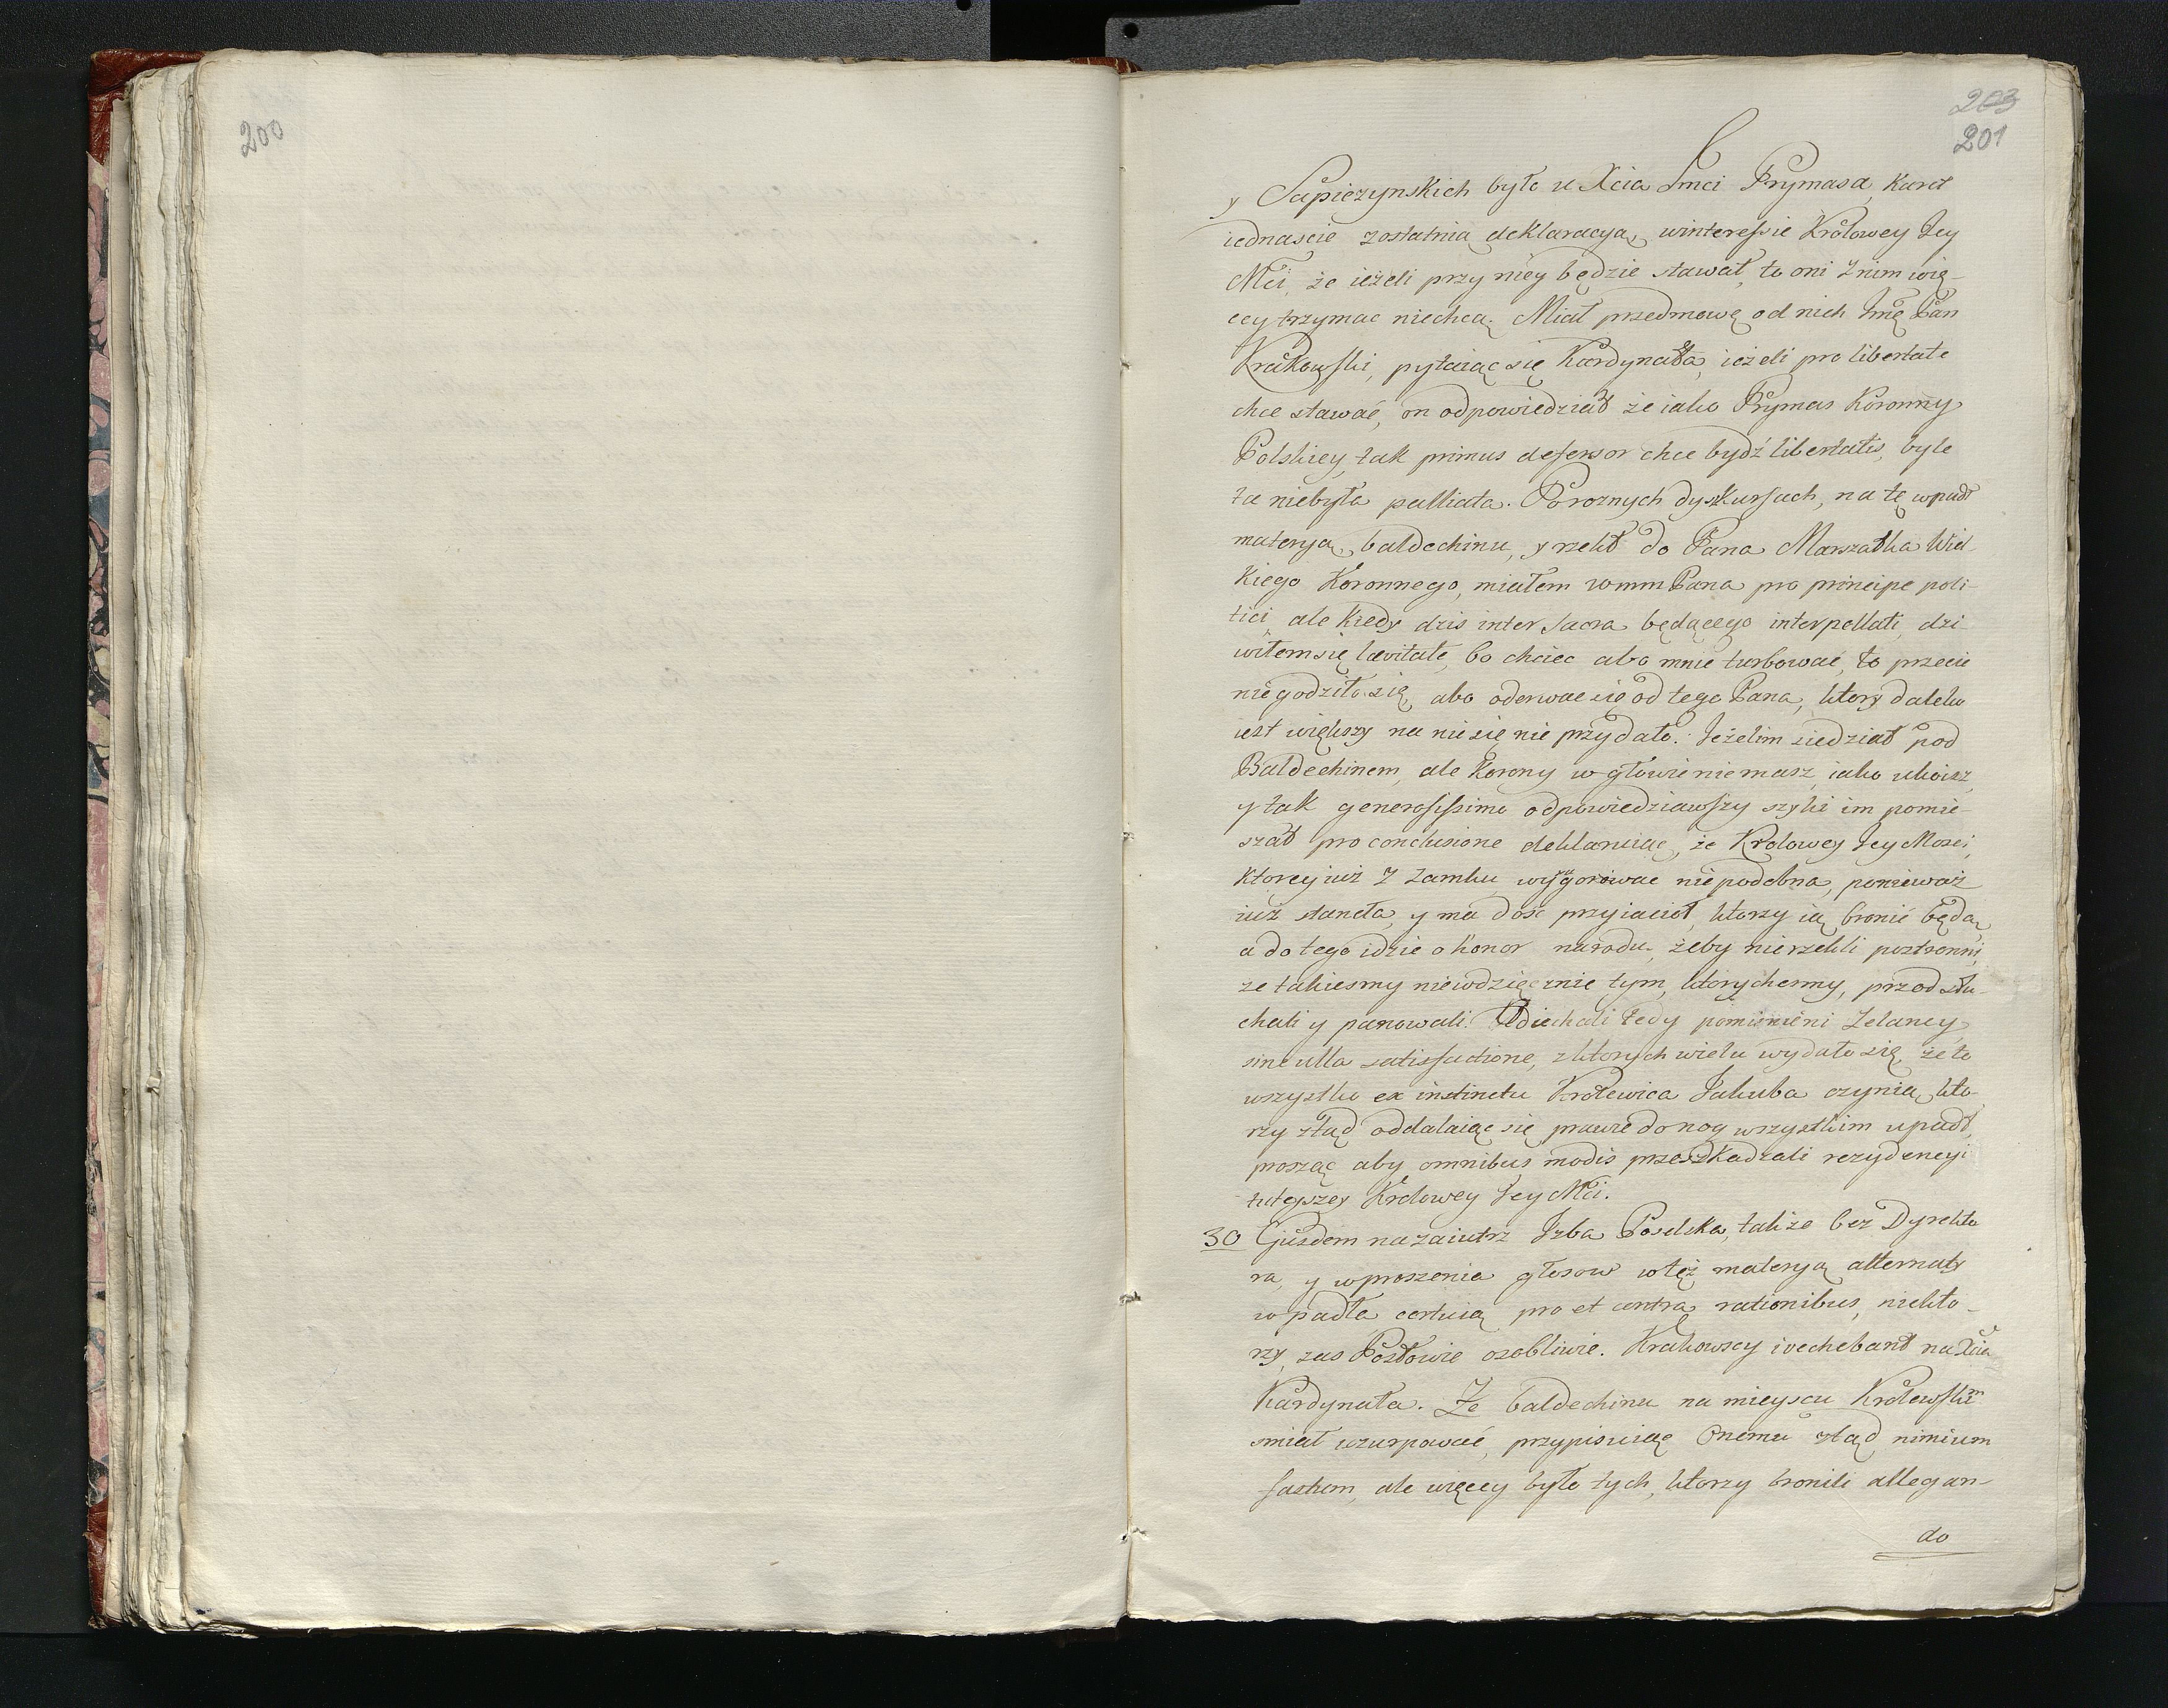 200
203
201
y Sapiezynskich było u Xcia Jmci Prymasa, karet
iednaście zostatnią deklaracyą, winteressie Królowey Jey
Mci, że ieżeli przy niey będzie stawał, to oni z nim wię-
cey trzymac niechcą. Miał przedmowę od nich Jmę Pan
Krakowski, pytaiąc się Kardynała, ieżeli pro libertate
chce stawać, on odpowiedział że iako Prymas Koronny
Polskiey, tak primus defensor chce bydź libertatis, byle
ta niebyła palliata. Po roznych dyszkursach, na tę wpadł
materyą, baldechinu, y rzekł do Pana Marszałka Wiel-
kiego Koronnego, miałem wmm Pana pro principe poli-
tici ale kiedy dzis inter sacra będącego interpellati, dzi-
wiłem się levitate, bo chciec abo mnie turbować, to przecie
niegodziło się, abo oderwac się od tego Pana, ktory daleko
iest większy na nic się nie przydało. Jeżelim siedział pod
Baldechinem, ale Korony w głowie niemasz, iako ukoisz,
y tak generosissime odpowiedziawszy szyki im pomie-
szał pro conclusione deklaruiąc, że Krolowey Jey Mosci,
Ktorey iuż z zamku wyrugowac niepodobna, ponieważ
iuż stanęła, y ma dość przyiaciół, ktorzy ią bronić będą,
a do tego idzie o honor narodu, żeby nierzekli postronni,
ze takiesmy niewdzięcznie tym, ktorychesmy, przod słu-
chali y panowali. Odiechali tedy pomienieni Zelancy,
sine ulla satisfactione, z ktorych wielu wydało się, że to
wszystko ex instinctu Krolewica Jakuba czynią, kto-
ry ztąd oddalaiąc się prawie do nog wszystkim upadł,
prosząc aby omnibus modis przeszkadzali rezydencyi
tuteyszey Krolowey Jey Mci.
30 Ejusdem nazaiutrz Jzba Poselska, także bez Dyrekto
ra, y wproszenia głosow w tęż materyą alternaty
wpadła certuią pro et contra rationibus, niekto-
rzy zas Posłowie osobliwie. Krakowscy invehebant na Xcia
Kardynała. Ze baldechinu na mieyscu Krolewskim
smiał uzurpować, przypisuiąc Onemu ztąd nimium
fastum, ale więcey było tych, ktorzy bronili allegan-
do